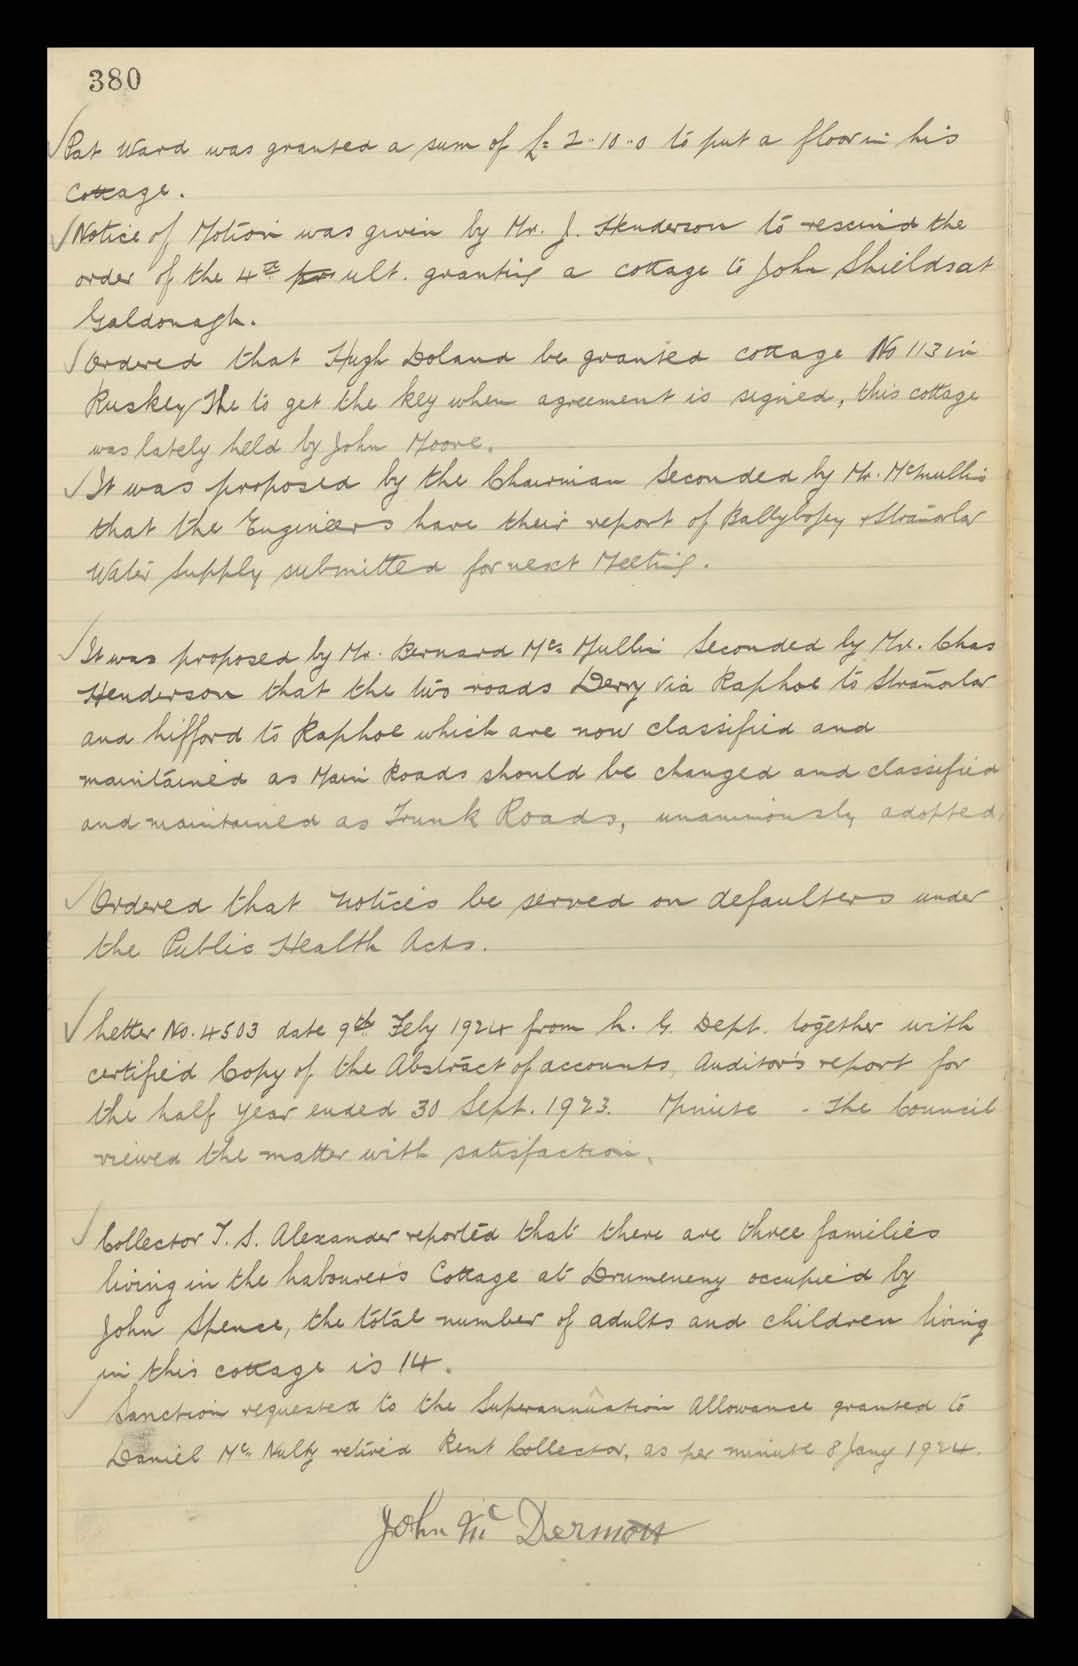 380
Pat Ward was granted a sum of £2-10-0 to put a floor in his
Cottage.
Notice of Motion was given by Mr. J. Henderson to rescind the
order of the 4th ult. granting a cottage to John Shields at
Galdonagh.
Ordered that Hugh Doland be granted cottage No 113 in
Ruskey He to get the key when agreement is signed, this cottage
was lately held by John Moore.
It was proposed by the Chairman Seconded by Mr. McMullin
that the Engineers have their report of Ballybofey & Stranorlar
Water Supply submitted for next Meeting.
It was proposed by Mr. Bernard Mc Mullin Seconded by Mr. Chas
Henderson that the two roads Derry via Raphoe to Stranorlar
and Lifford to Raphoe which are now classified and
maintained as Main Roads should be changed and classified
and maintained as Trunk Roads, unanimously adopted,
Ordered that notices be served on defaulters under
the Public Health Acts.
Letter No. 4503 date 9th Feby 1924 from L. G. Dept. together with
certified Copy of the Abstract of accounts, Auditor's report for
the half year ended 30 Sept. 1923. Minute - The Council
viewed the matter with satisfaction.
Collector T. S. Alexander reported that there are three families
living in the Labourer's Cottage at Drumeneny occupied by
John Spence, the total number of adults and children living
in this cottage is 14.
Sanction requested to the Superannuation Allowance granted to
Daniel Mc Nulty retired Rent Collector, as per minute 8 Jany 1924.
John Mc Dermott